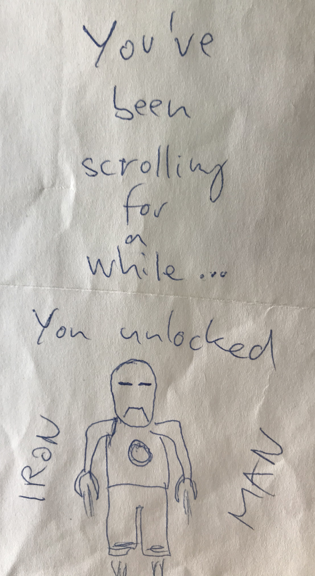 You've
been
scrolling
for
a
while...
You unlocked
IRON
MAN